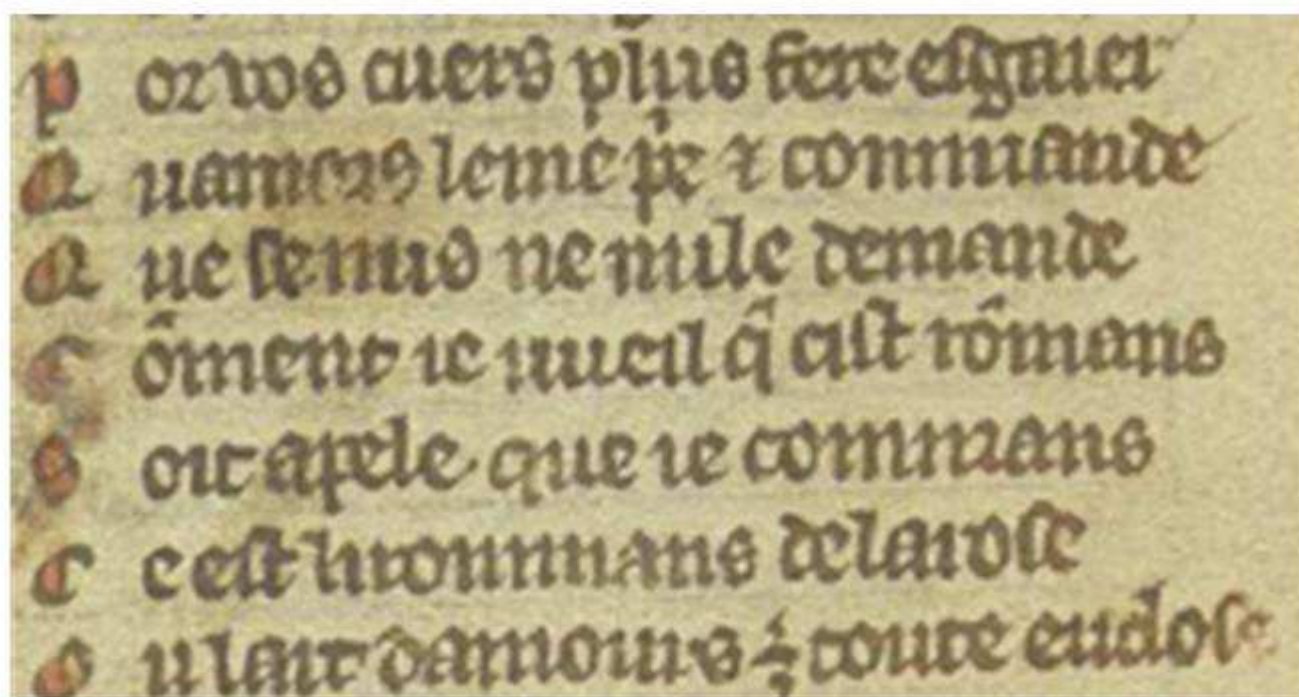 P or vos cuers plus fere esgaier
Q uamors le me prie ⁊ conmande
Q ue se nus ne nule demande
C õment ie uueil q̃ cist rõmans
S oit apele que ie commans
C e est li rommans de la rose
O u lart damours ÷ toute enclose